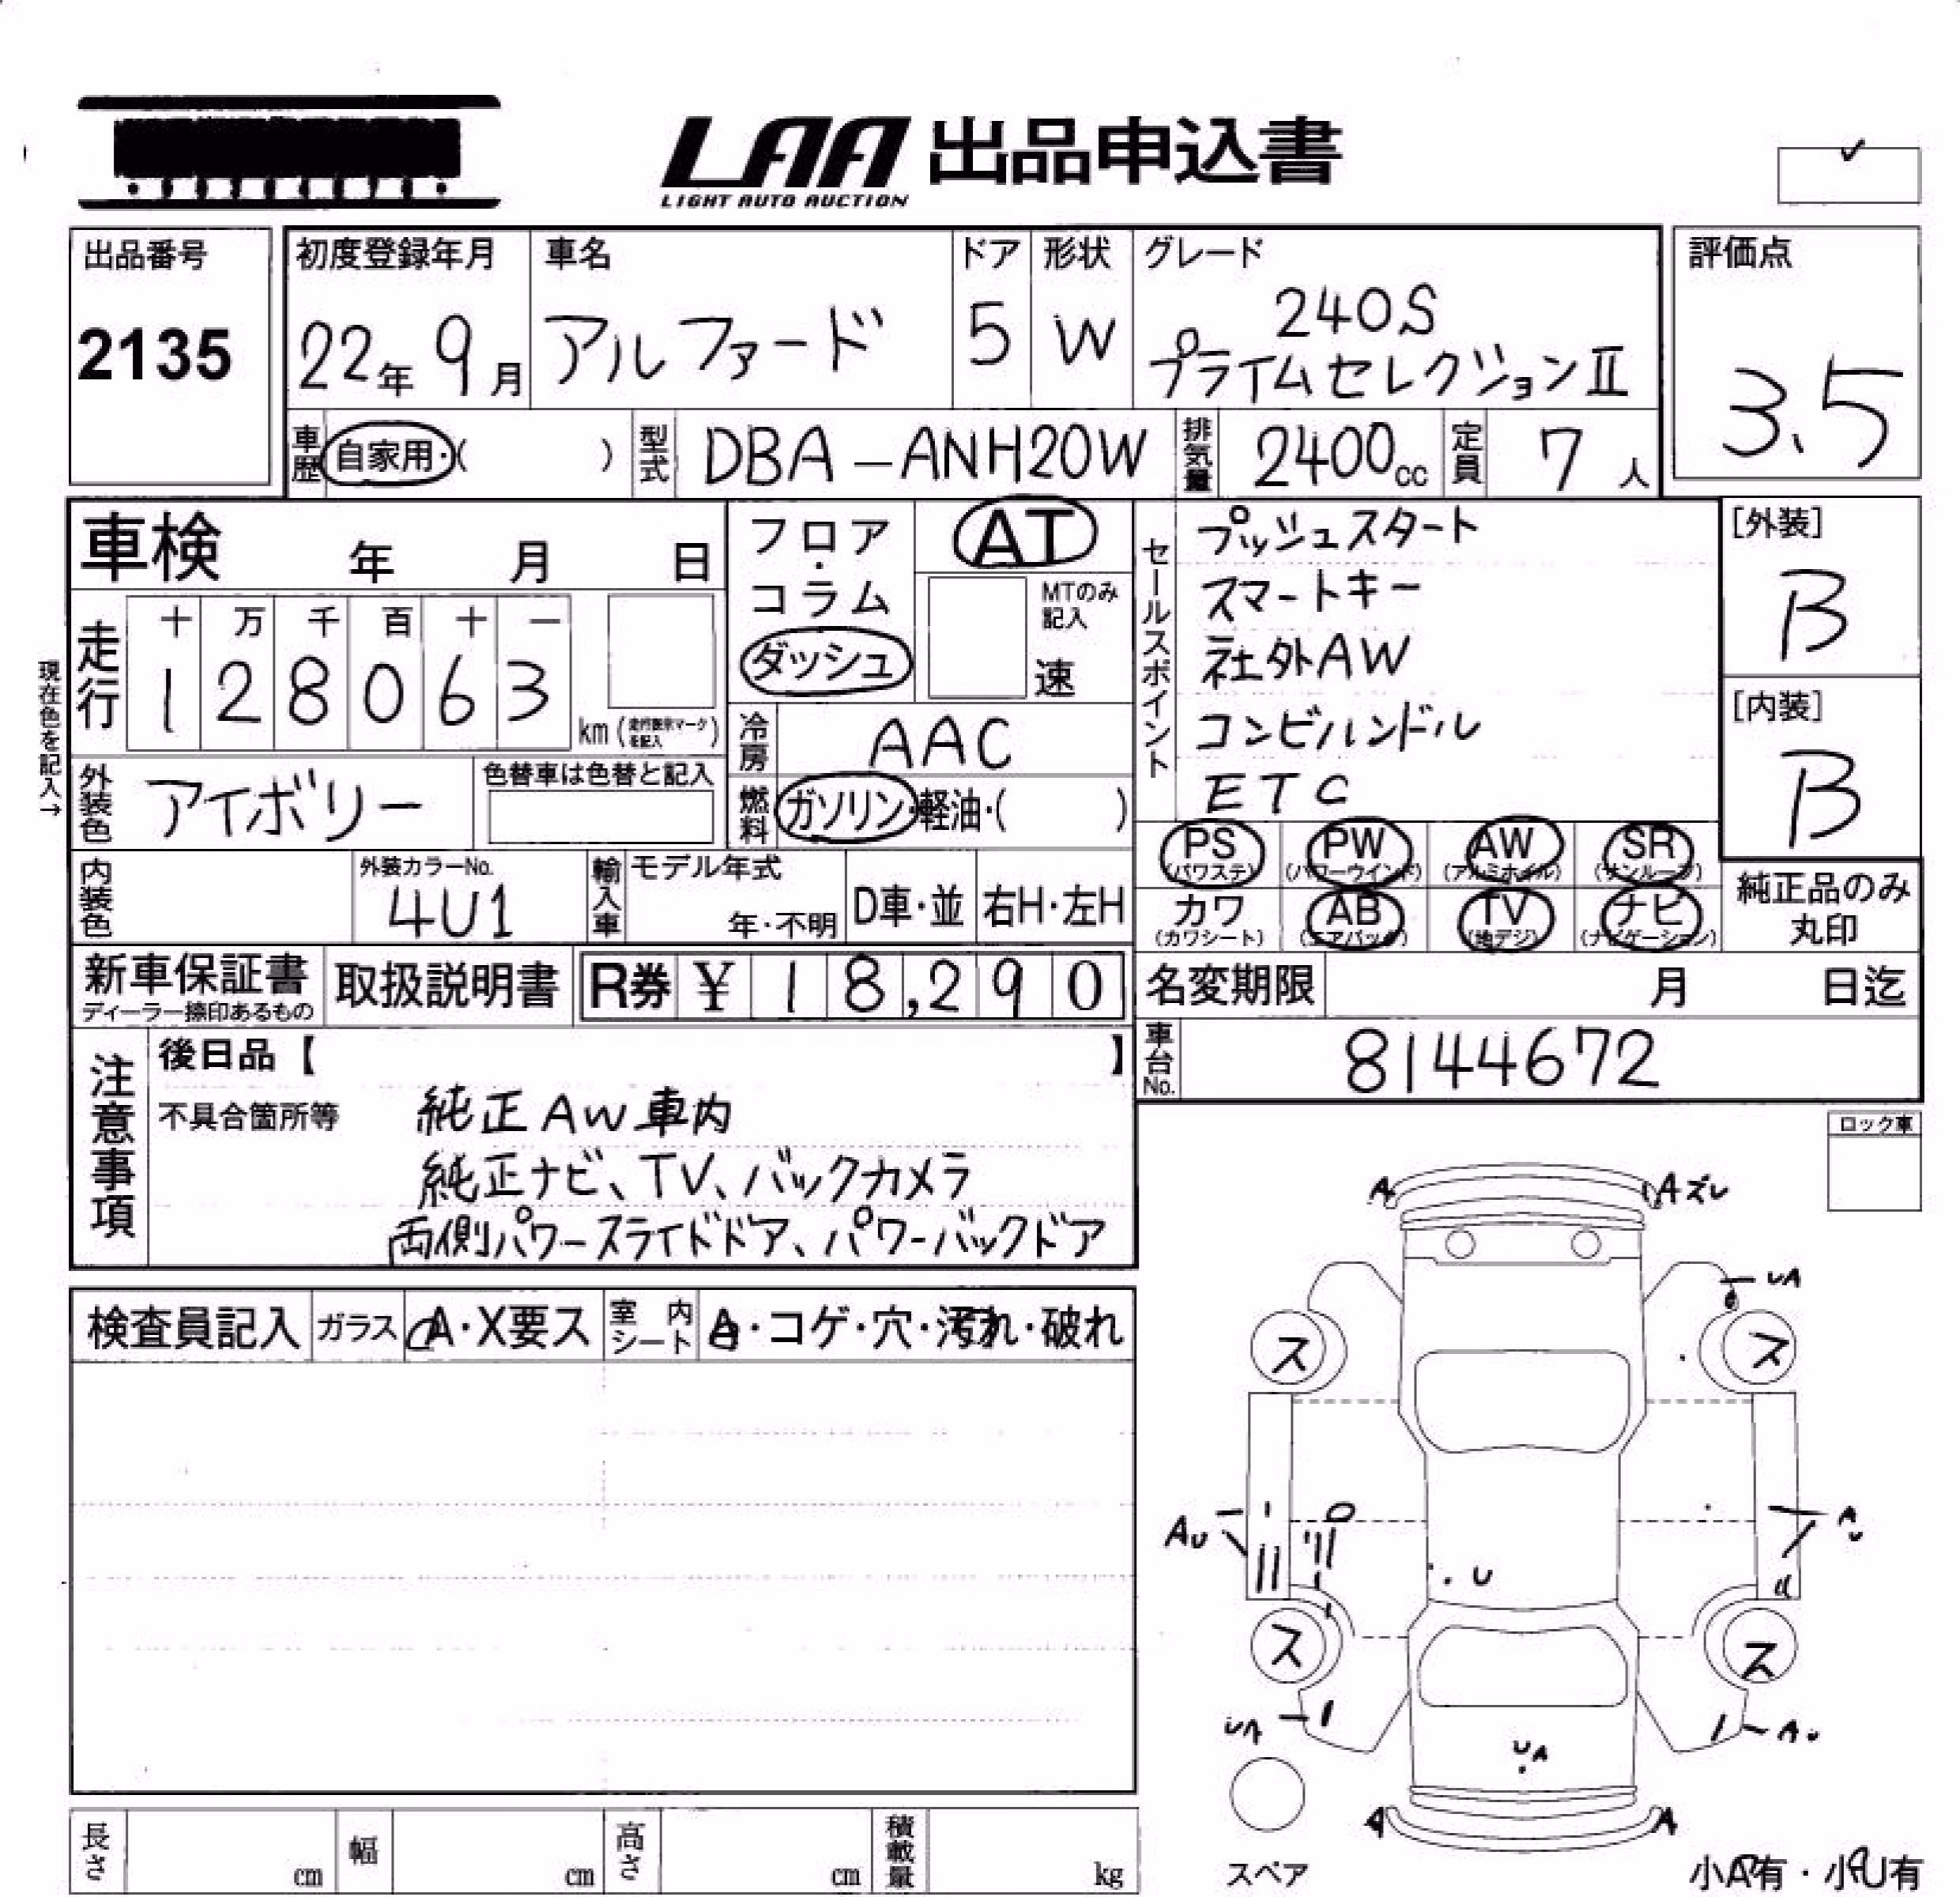 LAA 出品申込書
LIGHT AUTO AUCTION
出品番号
2135
初度登録年月
22年 9月
車名
アルファード
ドア
5
形状
W
グレード
240S
プライムセレクションⅡ
評価点
3.5
車歴 自家用・( )
型式 DBA-ANH20W
排気量 2400cc
定員 7人
車検 年 月 日
走行 十 万 千 百 十 一
128063
km (走行表示マークを記入)
現在色を記入→
フロア・コラム
ダッシュ
AT
MTのみ記入
速
冷房 AAC
燃料 ガソリン・軽油・( )
セールスポイント
プッシュスタート
スマートキー
社外AW
コンビハンドル
ETC
[外装]
B
[内装]
B
外装色 アイボリー
色替車は色替と記入
内装色
外装カラーNo.
4U1
輸入車 モデル年式
年・不明
D車・並
右H・左H
PS (パワステ)
PW (パワーウインド)
AW (アルミホイル)
SR (サンルーフ)
カワ (カワシート)
AB (エアバック)
TV (地デジ)
ナビ (ナビゲーション)
純正品のみ
丸印
新車保証書
ディーラー捺印あるもの
取扱説明書
R券 ¥ 18,290
名変期限 月 日迄
車台No. 8144672
注意事項
後日品【 】
不具合箇所等
純正AW車内
純正ナビ、TV、バックカメラ
両側パワースライドドア、パワーバックドア
ロック車
検査員記入
ガラス A・X要ス
室内シート A・コゲ・穴・汚れ・破れ
A
Aズレ
UA
ス
ス
AU
U
ス
ス
UA
UA
AU
A
A
スペア
小A有・小U有
長さ cm
幅 cm
高さ cm
積載量 kg